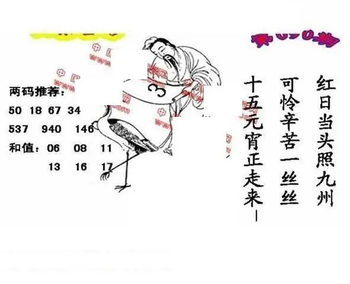 两码推荐:
50 18 67 34
537 940 146
和值: 06 08 11
13 16 17
3
红日当头照九州
可怜辛苦一丝丝
十五元宵正走来